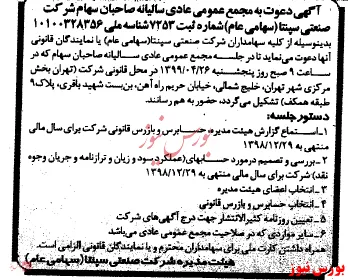 آگهی دعوت به مجمع عمومی عادی سالیانه صاحبان سهام شرکت
صنعتی سپنتا (سهامی عام) شماره ثبت ۷۲۵۳ شناسه ملی ۱۰۱۰۰۳۲۸۳۵۶
بدینوسیله از کلیه سهامداران شرکت صنعتی سپنتا (سهامی عام) یا نمایندگان قانونی
آنها دعوت می‌نماید تا در جلسه مجمع عمومی عادی سالیانه صاحبان سهام که در
ساعت ۹ صبح روز پنجشنبه ۱۳۹۹/۰۴/۲۶ در محل قانونی شرکت (تهران بخش
مرکزی شهر تهران، خلیج شمالی، خیابان حریم راه آهن، بن‌بست شهید باقری، پلاک ۹
طبقه همکف) تشکیل می‌گردد، حضور به هم رسانند.
دستور جلسه:
۱- استماع گزارش هیئت مدیره، حسابرس و بازرس قانونی شرکت برای سال مالی
منتهی به ۱۳۹۸/۱۲/۲۹
۲- بررسی و تصمیم در مورد حسابهای (عملکرد سود و زیان و ترازنامه و جریان وجوه
نقد) شرکت برای سال مالی منتهی به ۱۳۹۸/۱۲/۲۹
۳- انتخاب اعضای هیئت مدیره
۴- انتخاب حسابرس و بازرس قانونی
۵- تعیین روزنامه کثیرالانتشار جهت درج آگهی‌های شرکت
۶- سایر مواردی که در صلاحیت مجمع عمومی عادی می‌باشد
همراه داشتن کارت ملی برای سهامداران محترم و یا نمایندگان قانونی الزامی است.
هیئت مدیره شرکت صنعتی سپنتا (سهامی عام)
بورس نیوز
بورس نیوز